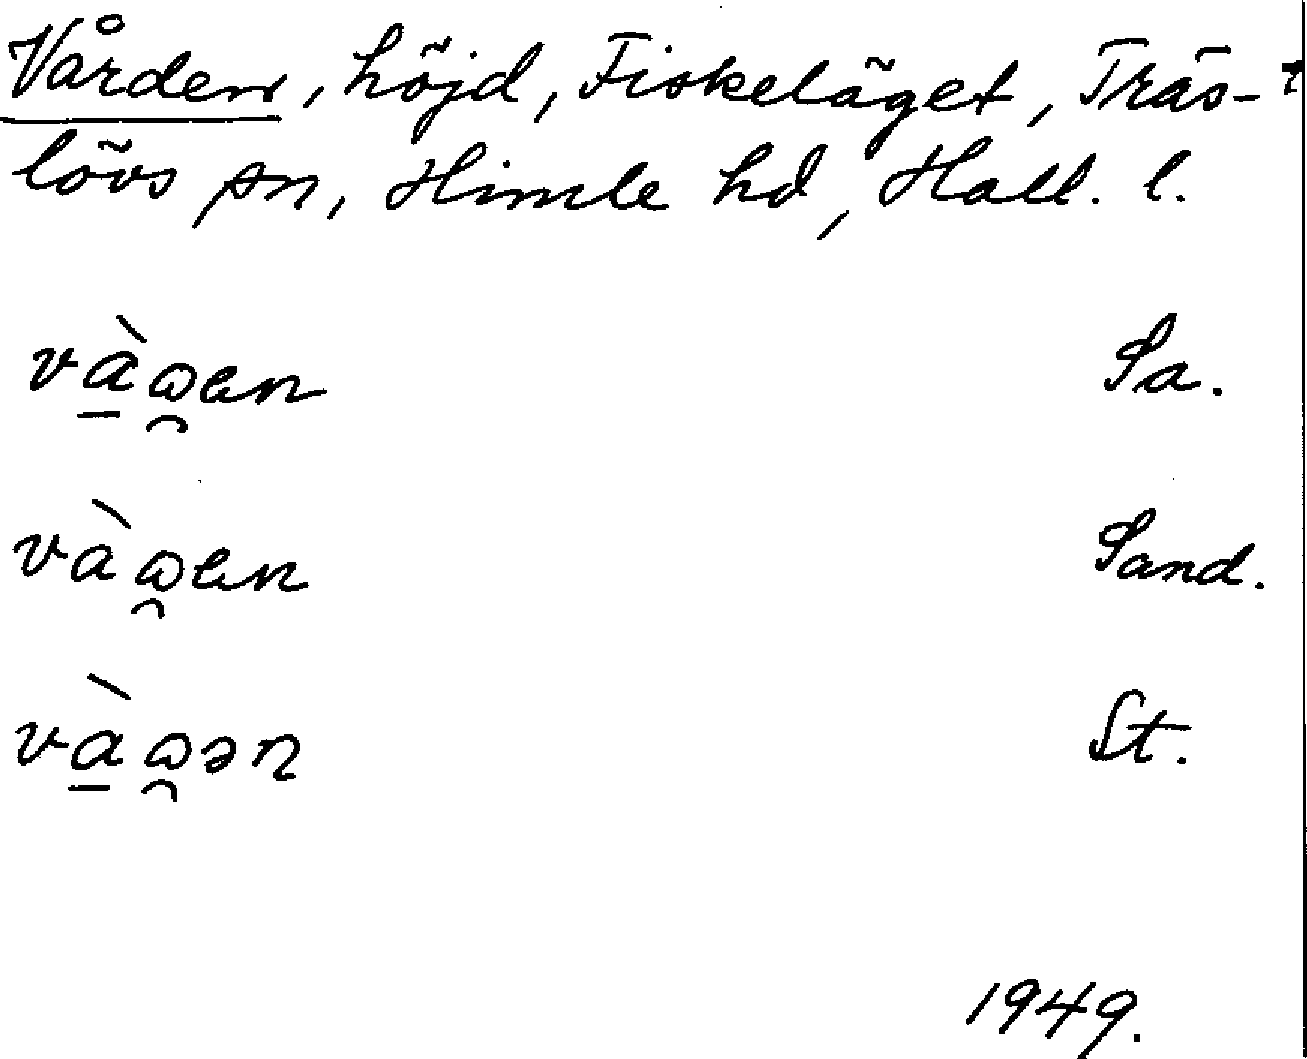 Vården, höjd, Fiskeläget, Träs-
lövs sn, Himle hd, Hall. l.
và̱ω̯en Sa.
vàω̯en Sand.
và̱ω̯ən St.
1949.